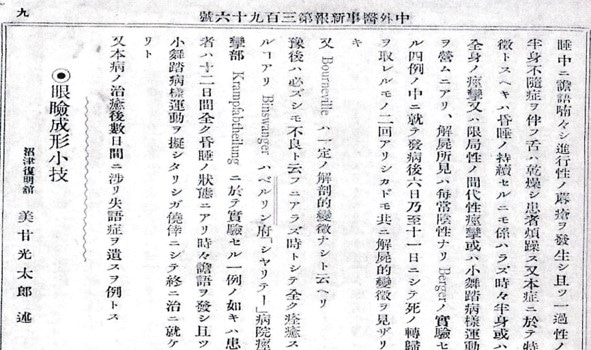 中外醫事新報第三百九十六號
九
睡中ニ譫語喃々シ進行性ノ蓐瘡ヲ發生シ且ツ一過性ノ
半身不隨症ヲ伴フ舌ハ乾燥シ患者煩躁ス又本症ニ於テ特
徵トスヘキハ昏睡ノ持續セルニモ係ハラズ時々半身或ハ
全身ノ痙攣又ハ限局性ノ間代性痙攣或ハ小舞踏病樣運動
ヲ營ムニアリ、解屍所見ハ每常陰性ナリBergerノ實驗セ
ル四例ノ中ニ就テ發病後六日乃至十一日ニシテ死ノ轉歸
ヲ取レルモノ二回アリシカドモ共ニ解屍的變徵ヲ見ザリ
キ
又Bournevilleハ一定ノ解剖的變徵ナシト云ヘリ
豫後ハ必ズシモ不良ト云フニアラズ時トシテ全ク痊癒ス
ル┐アリBinswangerハ「ベルリン府」「シャリテー」病院痙
攣部Krampfabtheilungニ於テ實驗セル一例ノ如キハ患
者ハ十二日間全ク昏睡ノ狀態ニアリ時々譫語ヲ發シ且ツ
小舞踏病樣運動ヲ擬シタリシガ僥倖ニシテ終ニ治ニ就ケ
リト
又本病ノ治癒後數日間ニ涉リ失語症ヲ遺スヲ例トス
◉眼瞼成形小技
沼津復明館 美甘光太郎 述